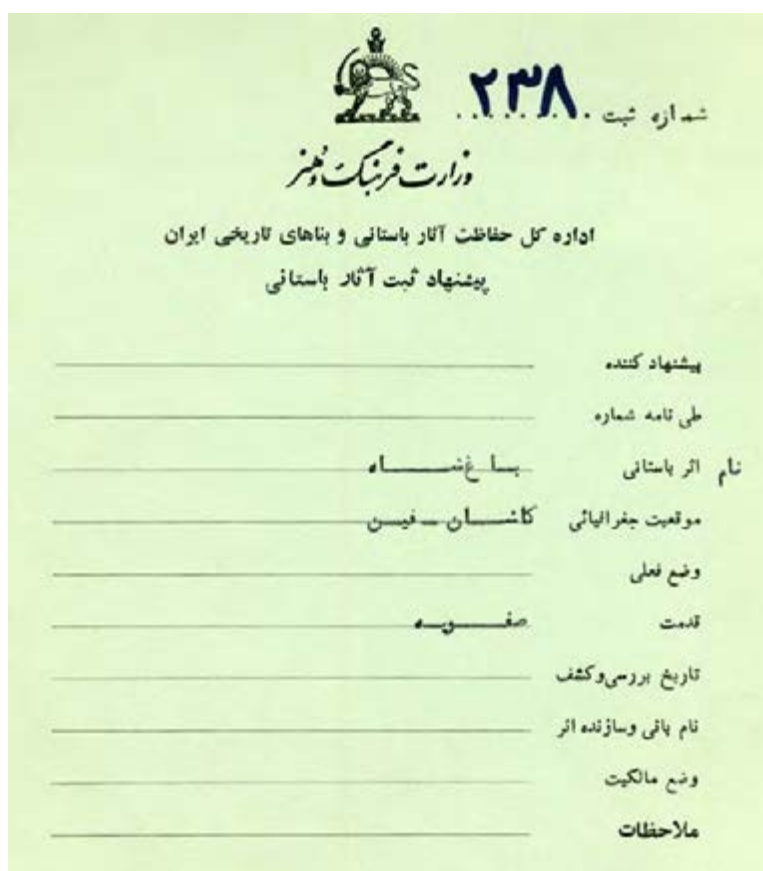 شماره ثبت ۲۳۸
وزارت فرهنگ و هنر
اداره کل حفاظت آثار باستانی و بناهای تاریخی ایران
پیشنهاد ثبت آثار باستانی
پیشنهاد کننده
طی نامه شماره
نام اثر باستانی باغ شاه
موقعیت جغرافیائی کاشان - فین
وضع فعلی
قدمت صفویه
تاریخ بررسی و کشف
نام بانی و سازنده اثر
وضع مالکیت
ملاحظات